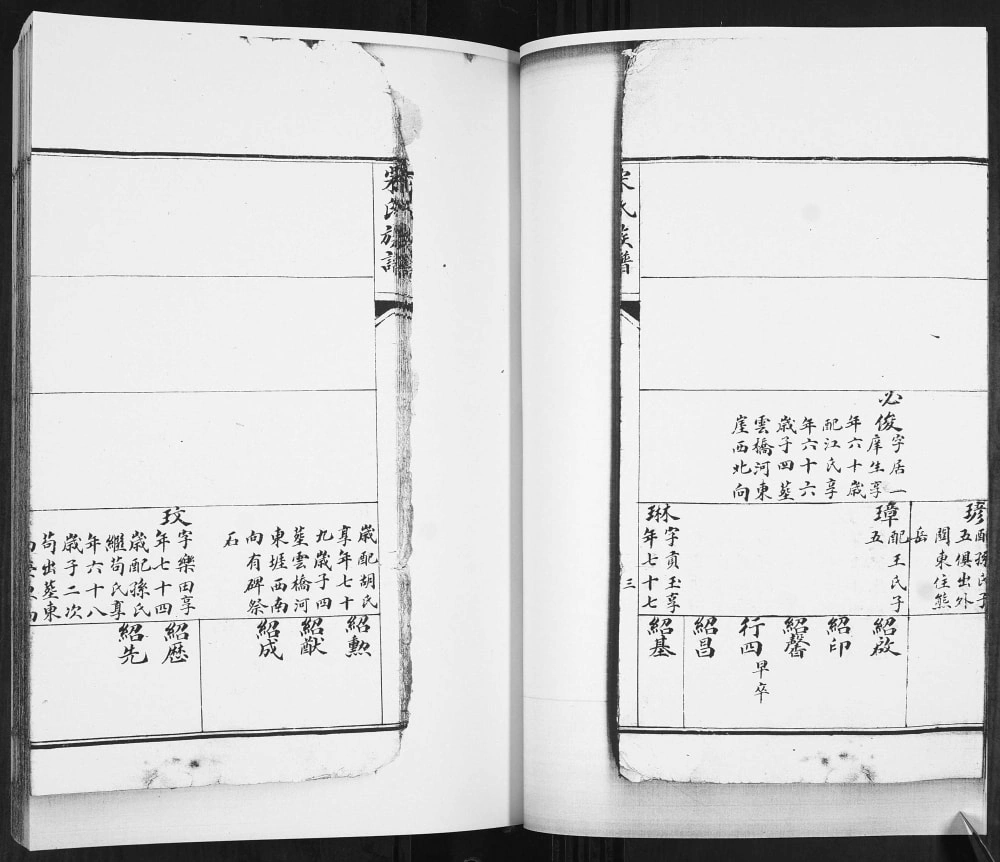 必俊字居一
庠生享
年六十歲
配江氏享
年六十六
歲子四塟
雲橋河東
崖西北向
瑃配孫氏子
五俱出外
閏東住熊
岳
璋配王氏子
五
琳字貢玉享
年七十七
紹啟
紹印
紹馨
行四早卒
紹昌
紹基
三
宋氏族譜
宋氏族譜
歲配胡氏
享年七十
九歲子四
塟雲橋河
東堐西南
向有碑祭
石
玟字樂田享
年七十四
歲配孫氏
繼苟氏享
年六十八
歲子二次
苟出塟東
紹勲
紹猷
紹成
紹歴
紹先